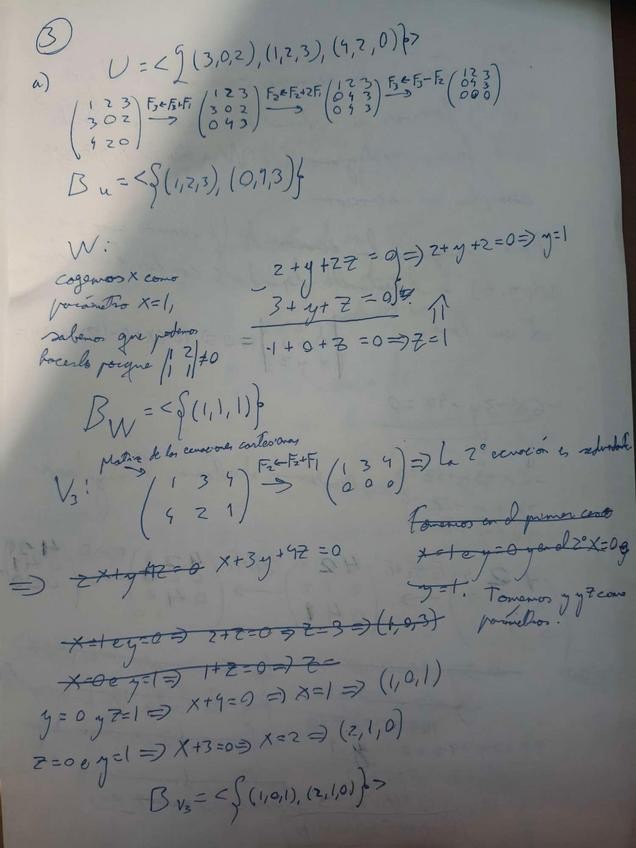 3
U = <{(3,0,2),(1,2,3),(4,2,0)}>
a)
(1 2 3 / 3 0 2 / 4 2 0) F3←F3+F1 → (1 2 3 / 3 0 2 / 0 4 3) F2←F2+2F1 → (1 2 3 / 0 4 3 / 0 4 3) F3←F3-F2 → (1 2 3 / 0 4 3 / 0 0 0)
B_u = <{(1,2,3), (0,4,3)}
W:
cogemos x como
parámetro x=1,
sabemos que podemos
hacerlo porque |1 2 / 1 1| ≠0
2+y+2z = 0 } ⇒ 2+y+2=0 ⇒ y=1
- 3+y+z = 0
-1 + 0 + z = 0 ⇒ z=1
B_W = <{(1,1,1)}>
Matriz de las ecuaciones cartesianas
V3: (1 3 4 / 4 2 1) F2←F2+F1 → (1 3 4 / 0 0 0) ⇒ La 2ª ecuación es redundante
Tomemos en el primer caso
x=1 e y=0 y en el 2º x=0 e
y=1. Tomemos y y z como
parámetros.
⇒ x+3y+4z=0
x=1 e y=0 ⇒ 2+z=0 ⇒ z=3 ⇒ (1,0,3)
x=0 e y=1 ⇒ 1+z=0 ⇒ z=
y=0 y z=1 ⇒ x+4=0 ⇒ x=1 ⇒ (1,0,1)
z=0 e y=1 ⇒ x+3=0 ⇒ x=2 ⇒ (2,1,0)
B_V3 = <{(1,0,1), (2,1,0)}>